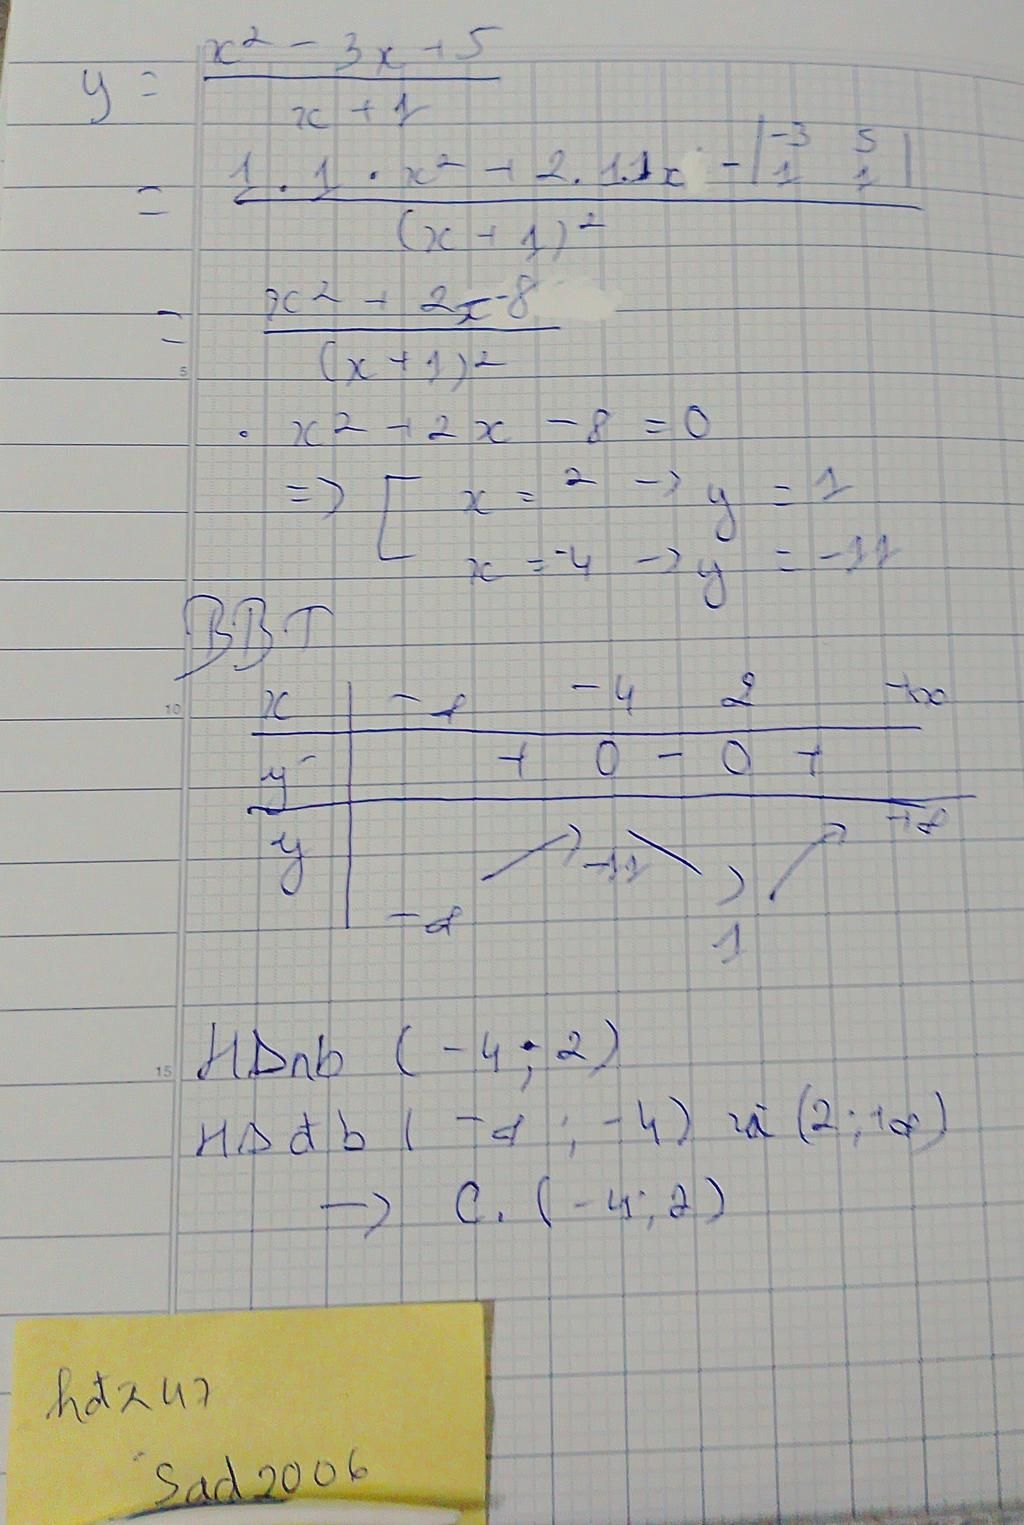 y = (x² - 3x + 5) / (x + 1)
= (1.1.x² + 2.1.1x - |-3 5; 1 1|) / (x + 1)²
= (x² + 2x - 8) / (x + 1)²
. x² + 2x - 8 = 0
=> [ x = 2 -> y = 1
x = -4 -> y = -11
BBT
x | -∞ -4 2 +∞
y' | + 0 - 0 +
y | -∞ ↗ -11 ↘ 1 ↗ +∞
HSnb (-4; 2)
HSđb (-∞; -4) và (2; +∞)
-> C. (-4; 2)
5
10
15
hdz47
Sad2006